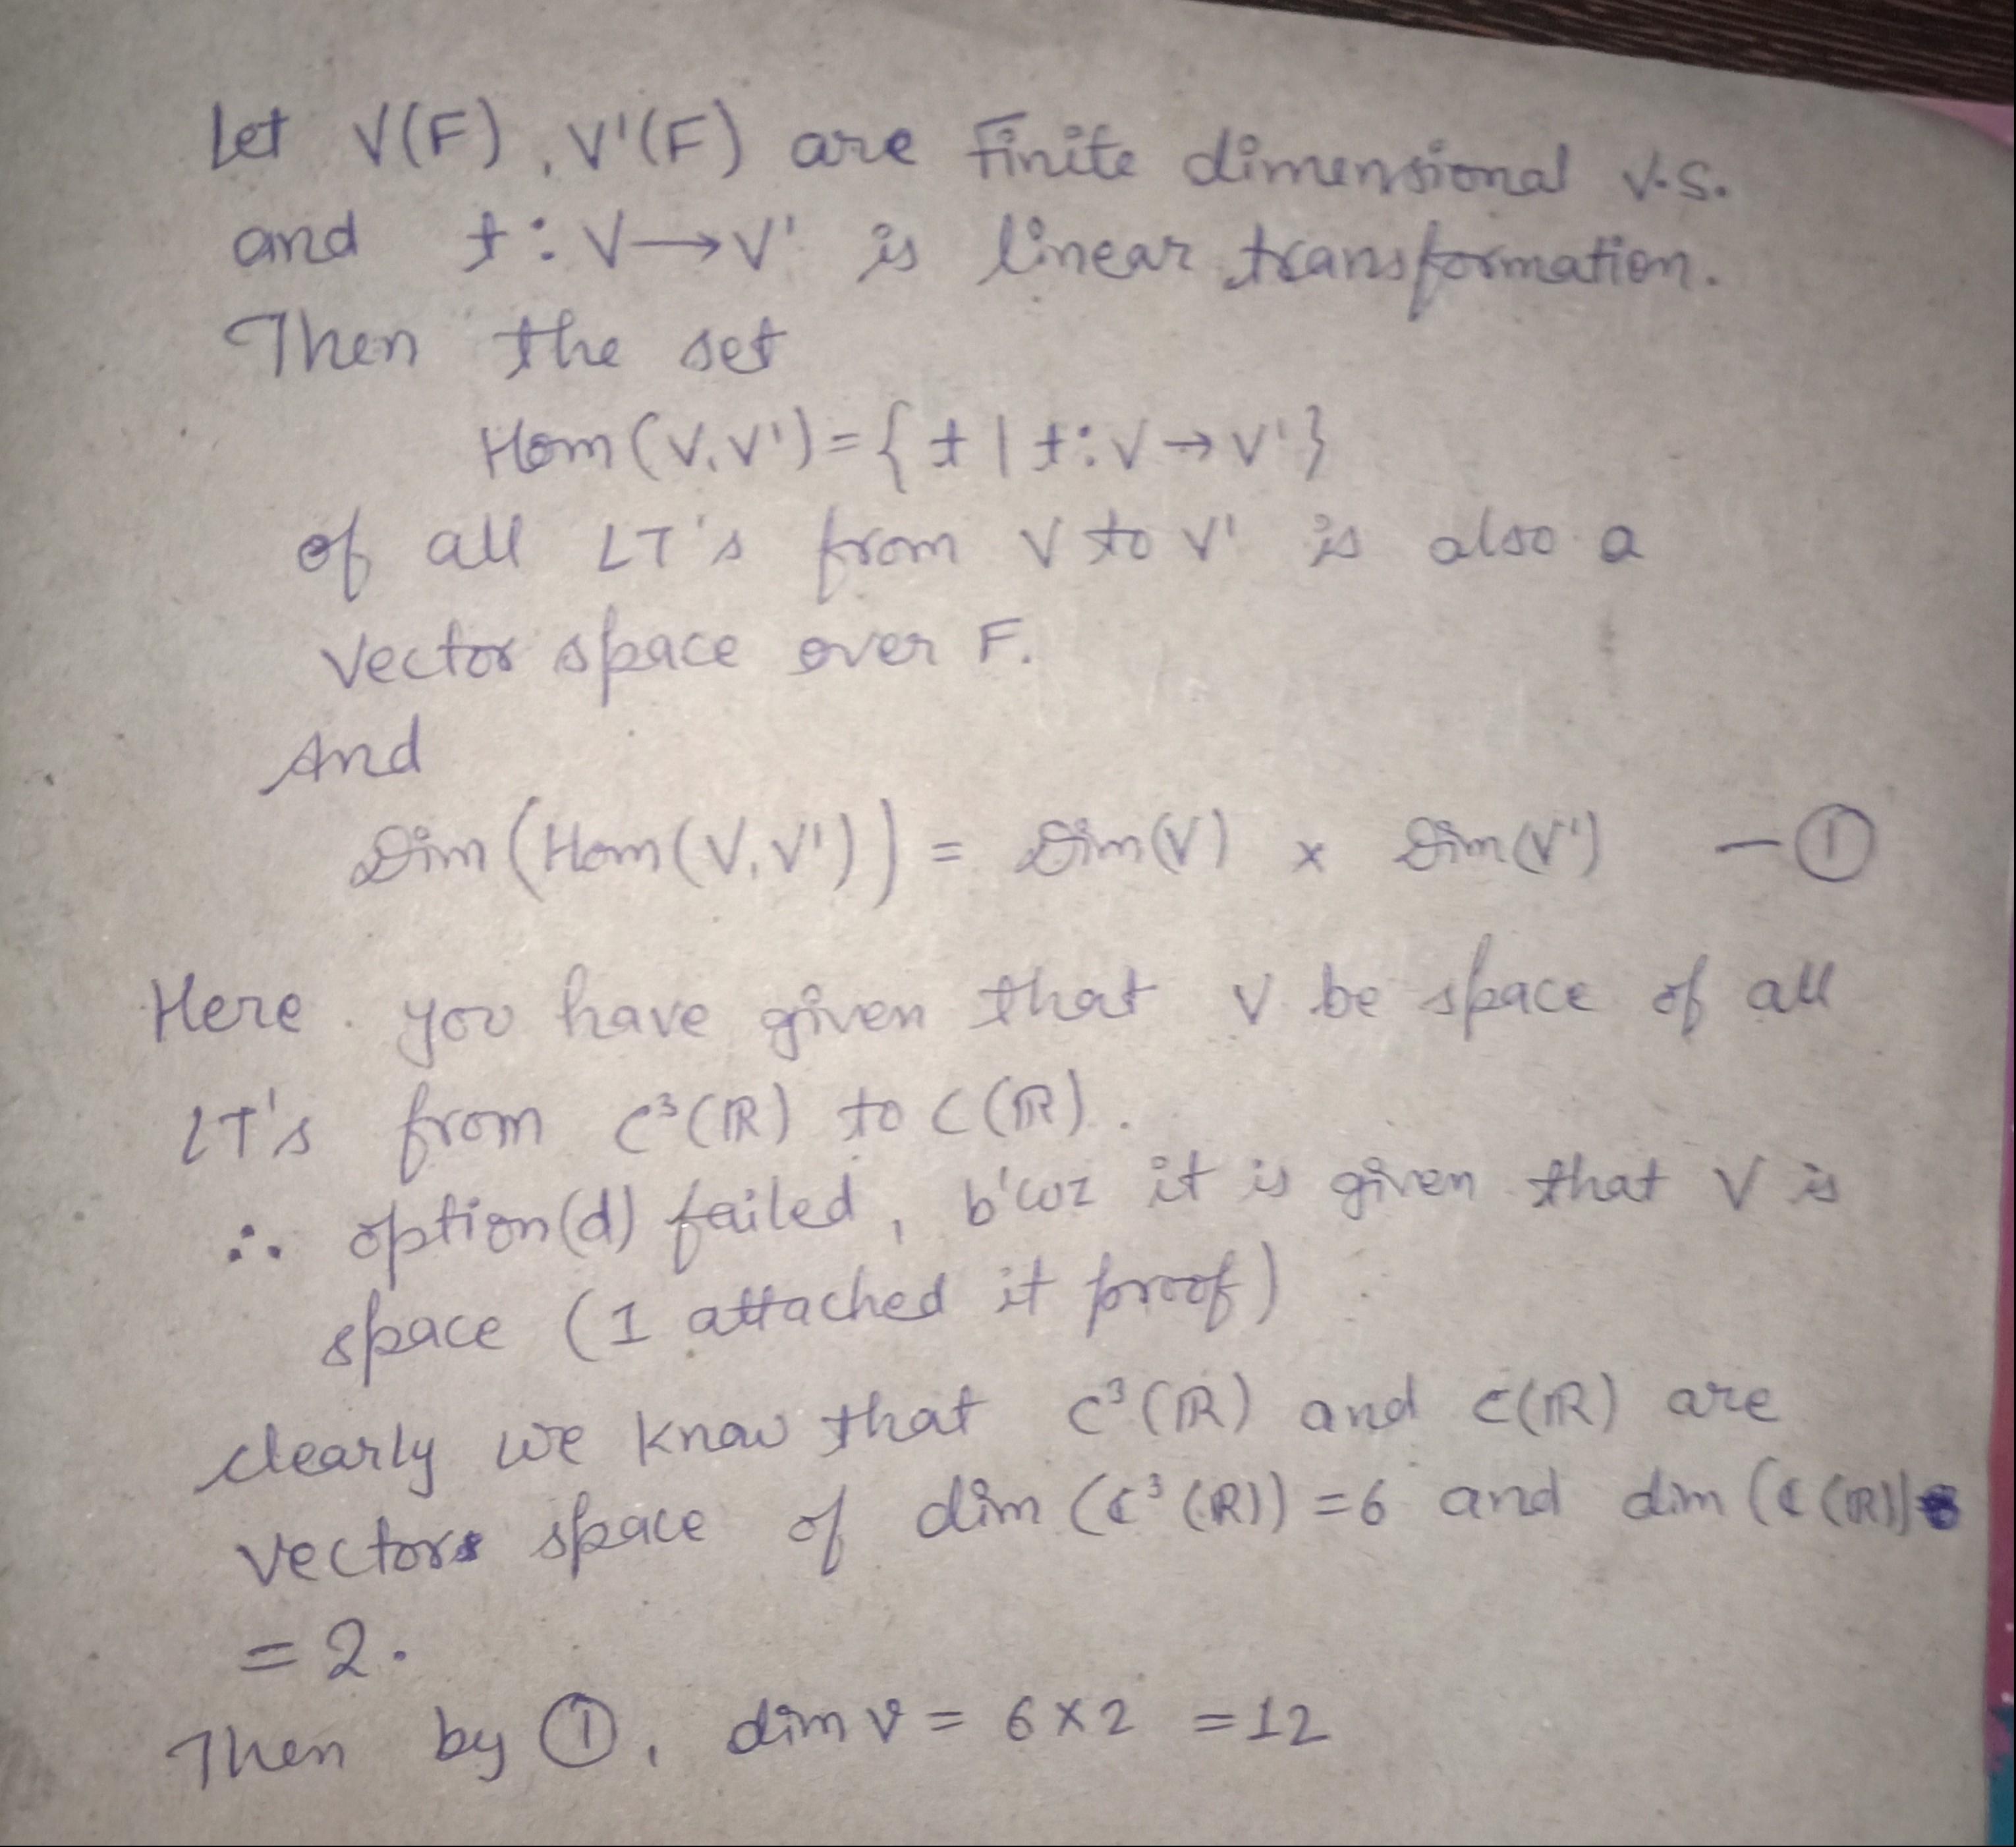 Let V(F), V'(F) are Finite dimensional V.S.
and t: V→V' is linear transformation.
Then the set
Hom (V, V') = { t | t: V → V' }
of all LT's from V to V' is also a
vector space over F.
And
Dim (Hom (V, V')) = Dim (V) x Dim (V') — ①
Here you have given that V be space of all
LT's from C³(ℝ) to C(ℝ).
∴ option (d) failed, b'coz it is given that V is
space (I attached it proof)
clearly we know that C³(ℝ) and C(ℝ) are
vector space of dim (ℂ³(ℝ)) = 6 and dim (ℂ(ℝ))
= 2.
Then by ①, dim V = 6 x 2 = 12